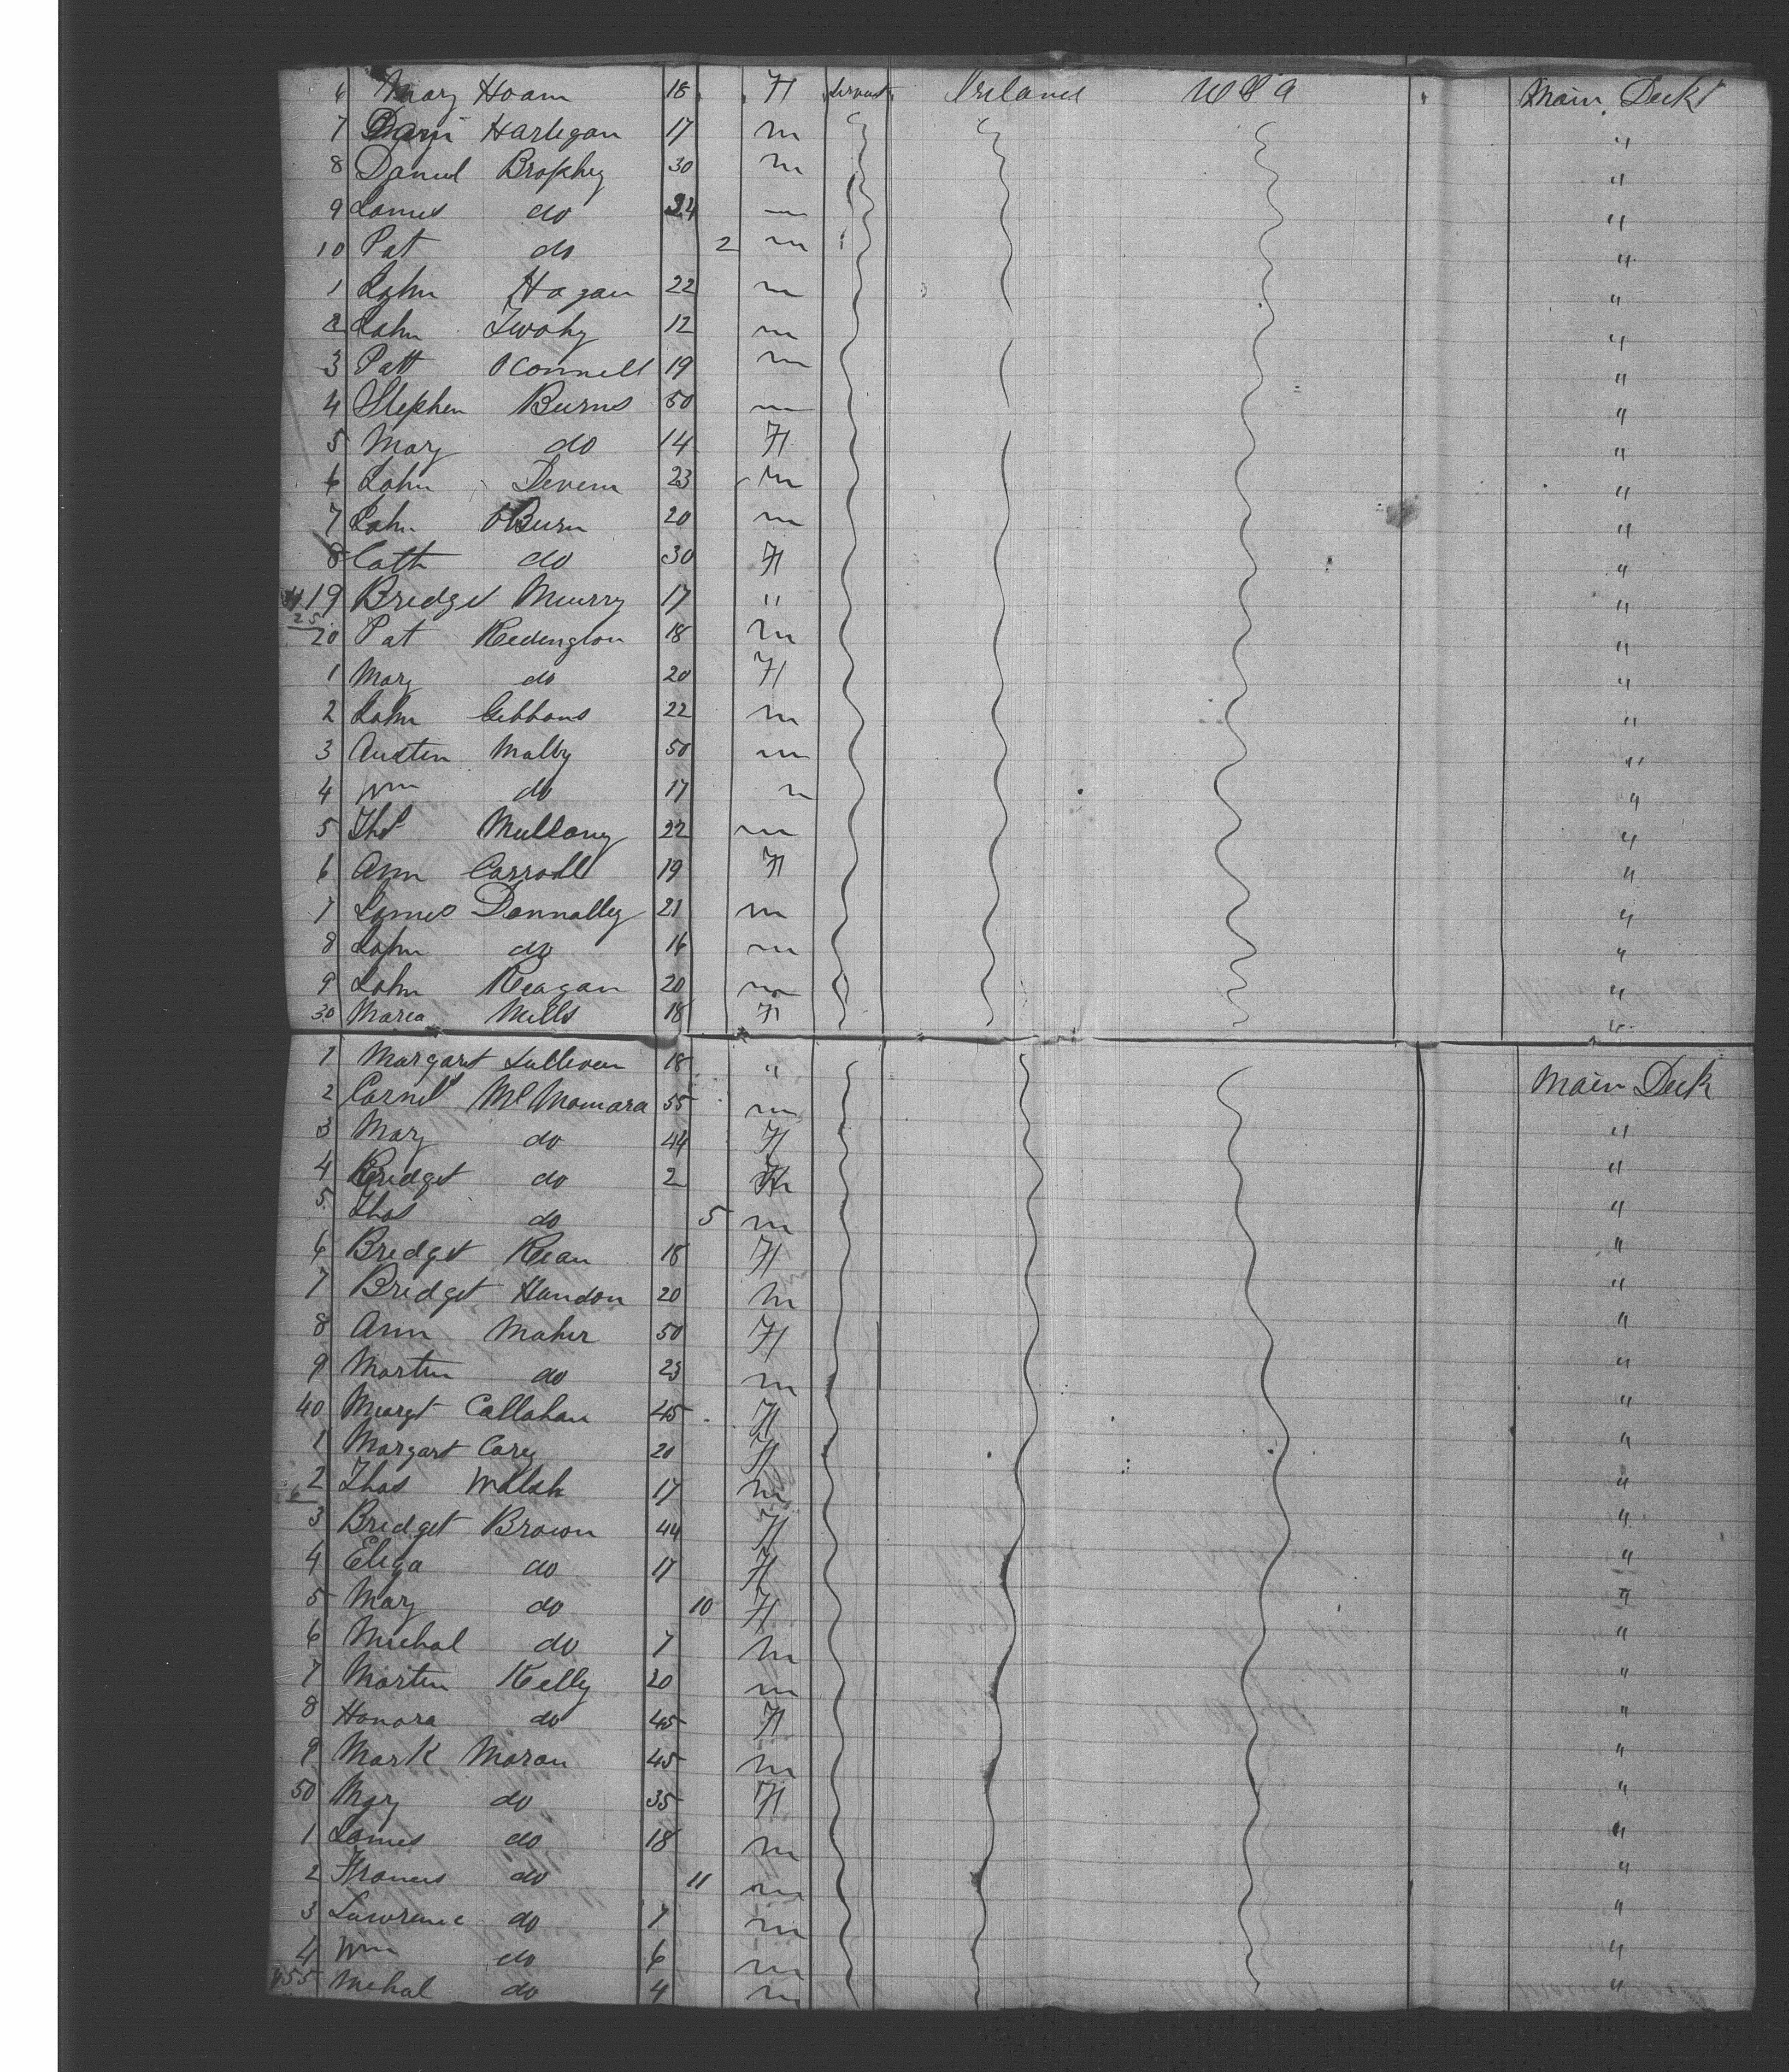 6 Mary Hoam 18 F Servant Ireland USA Main Deck
7 Harlegan 17 m "
8 Daniel Brophey 30 m "
9 James do 24 m "
10 Pat do 2 m "
1 John Hagan 22 m "
2 John Twohy 12 m "
3 Patt OConnell 19 m "
4 Stephen Burns 50 m "
5 Mary do 14 F "
6 John Devem 23 m "
7 John OBurn 20 m "
8 Cath do 30 F "
19 Bridget Murry 17 " "
25
20 Pat Redington 18 m "
1 Mary do 20 F "
2 John Gibbons 22 m "
3 Austin Malby 50 m "
4 Wm do 17 m "
5 Ths Mullany 22 m "
6 Ann Carroll 19 F "
7 James Donnalley 21 m "
8 John do 16 m "
9 John Reagan 20 m "
30 Maria Mills 18 F "
1 Margart Sullivan 18 " Main Deck
2 Cornel McMamara 55 m
3 Mary do 44 F "
4 Bridget do 2 "
5 Thos do 5 m "
6 Bridget Rean 18 F "
7 Bridget Handon 20 m "
8 Ann Maher 50 F "
9 Martin do 23 m "
40 Margt Callahan 45 F "
1 Margart Carey 20 F "
2 Thos Walsh 17 m "
3 Bridget Brown 44 F "
4 Eliza do 17 F "
5 Mary do 10 F "
6 Michal do 7 m "
7 Martin Kelly 20 m "
8 Honora do 45 F "
9 Mark Moran 45 m "
50 Mary do 35 F "
1 James do 18 m "
2 Frances do 11 m "
3 Lawrence do 7 m "
4 Wm do 6 m "
455 Mchal do 4 m "